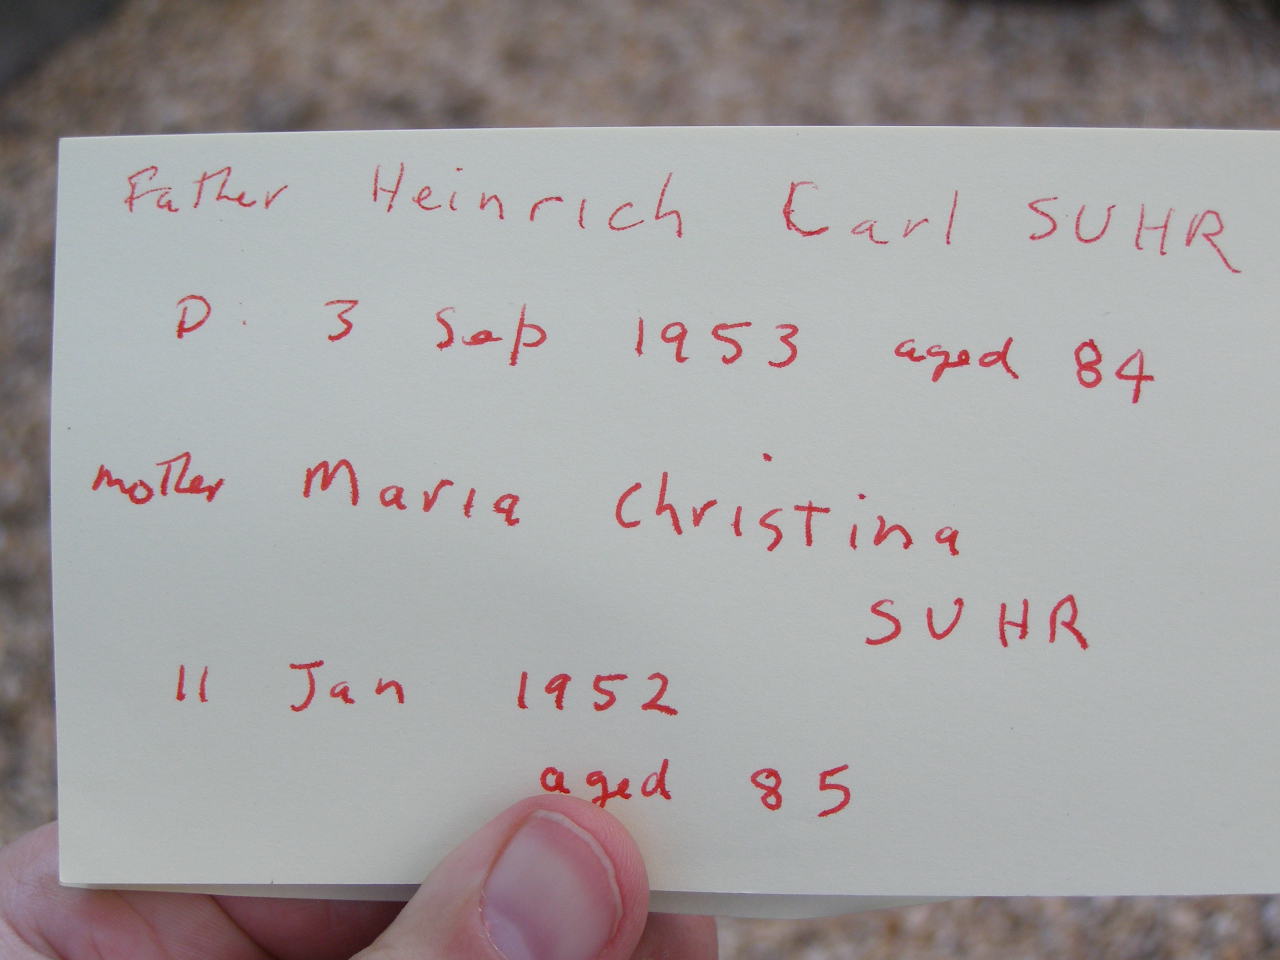 Father Heinrich Carl SUHR
D. 3 Sep 1953 aged 84
mother Maria Christina
SUHR
11 Jan 1952
aged 85